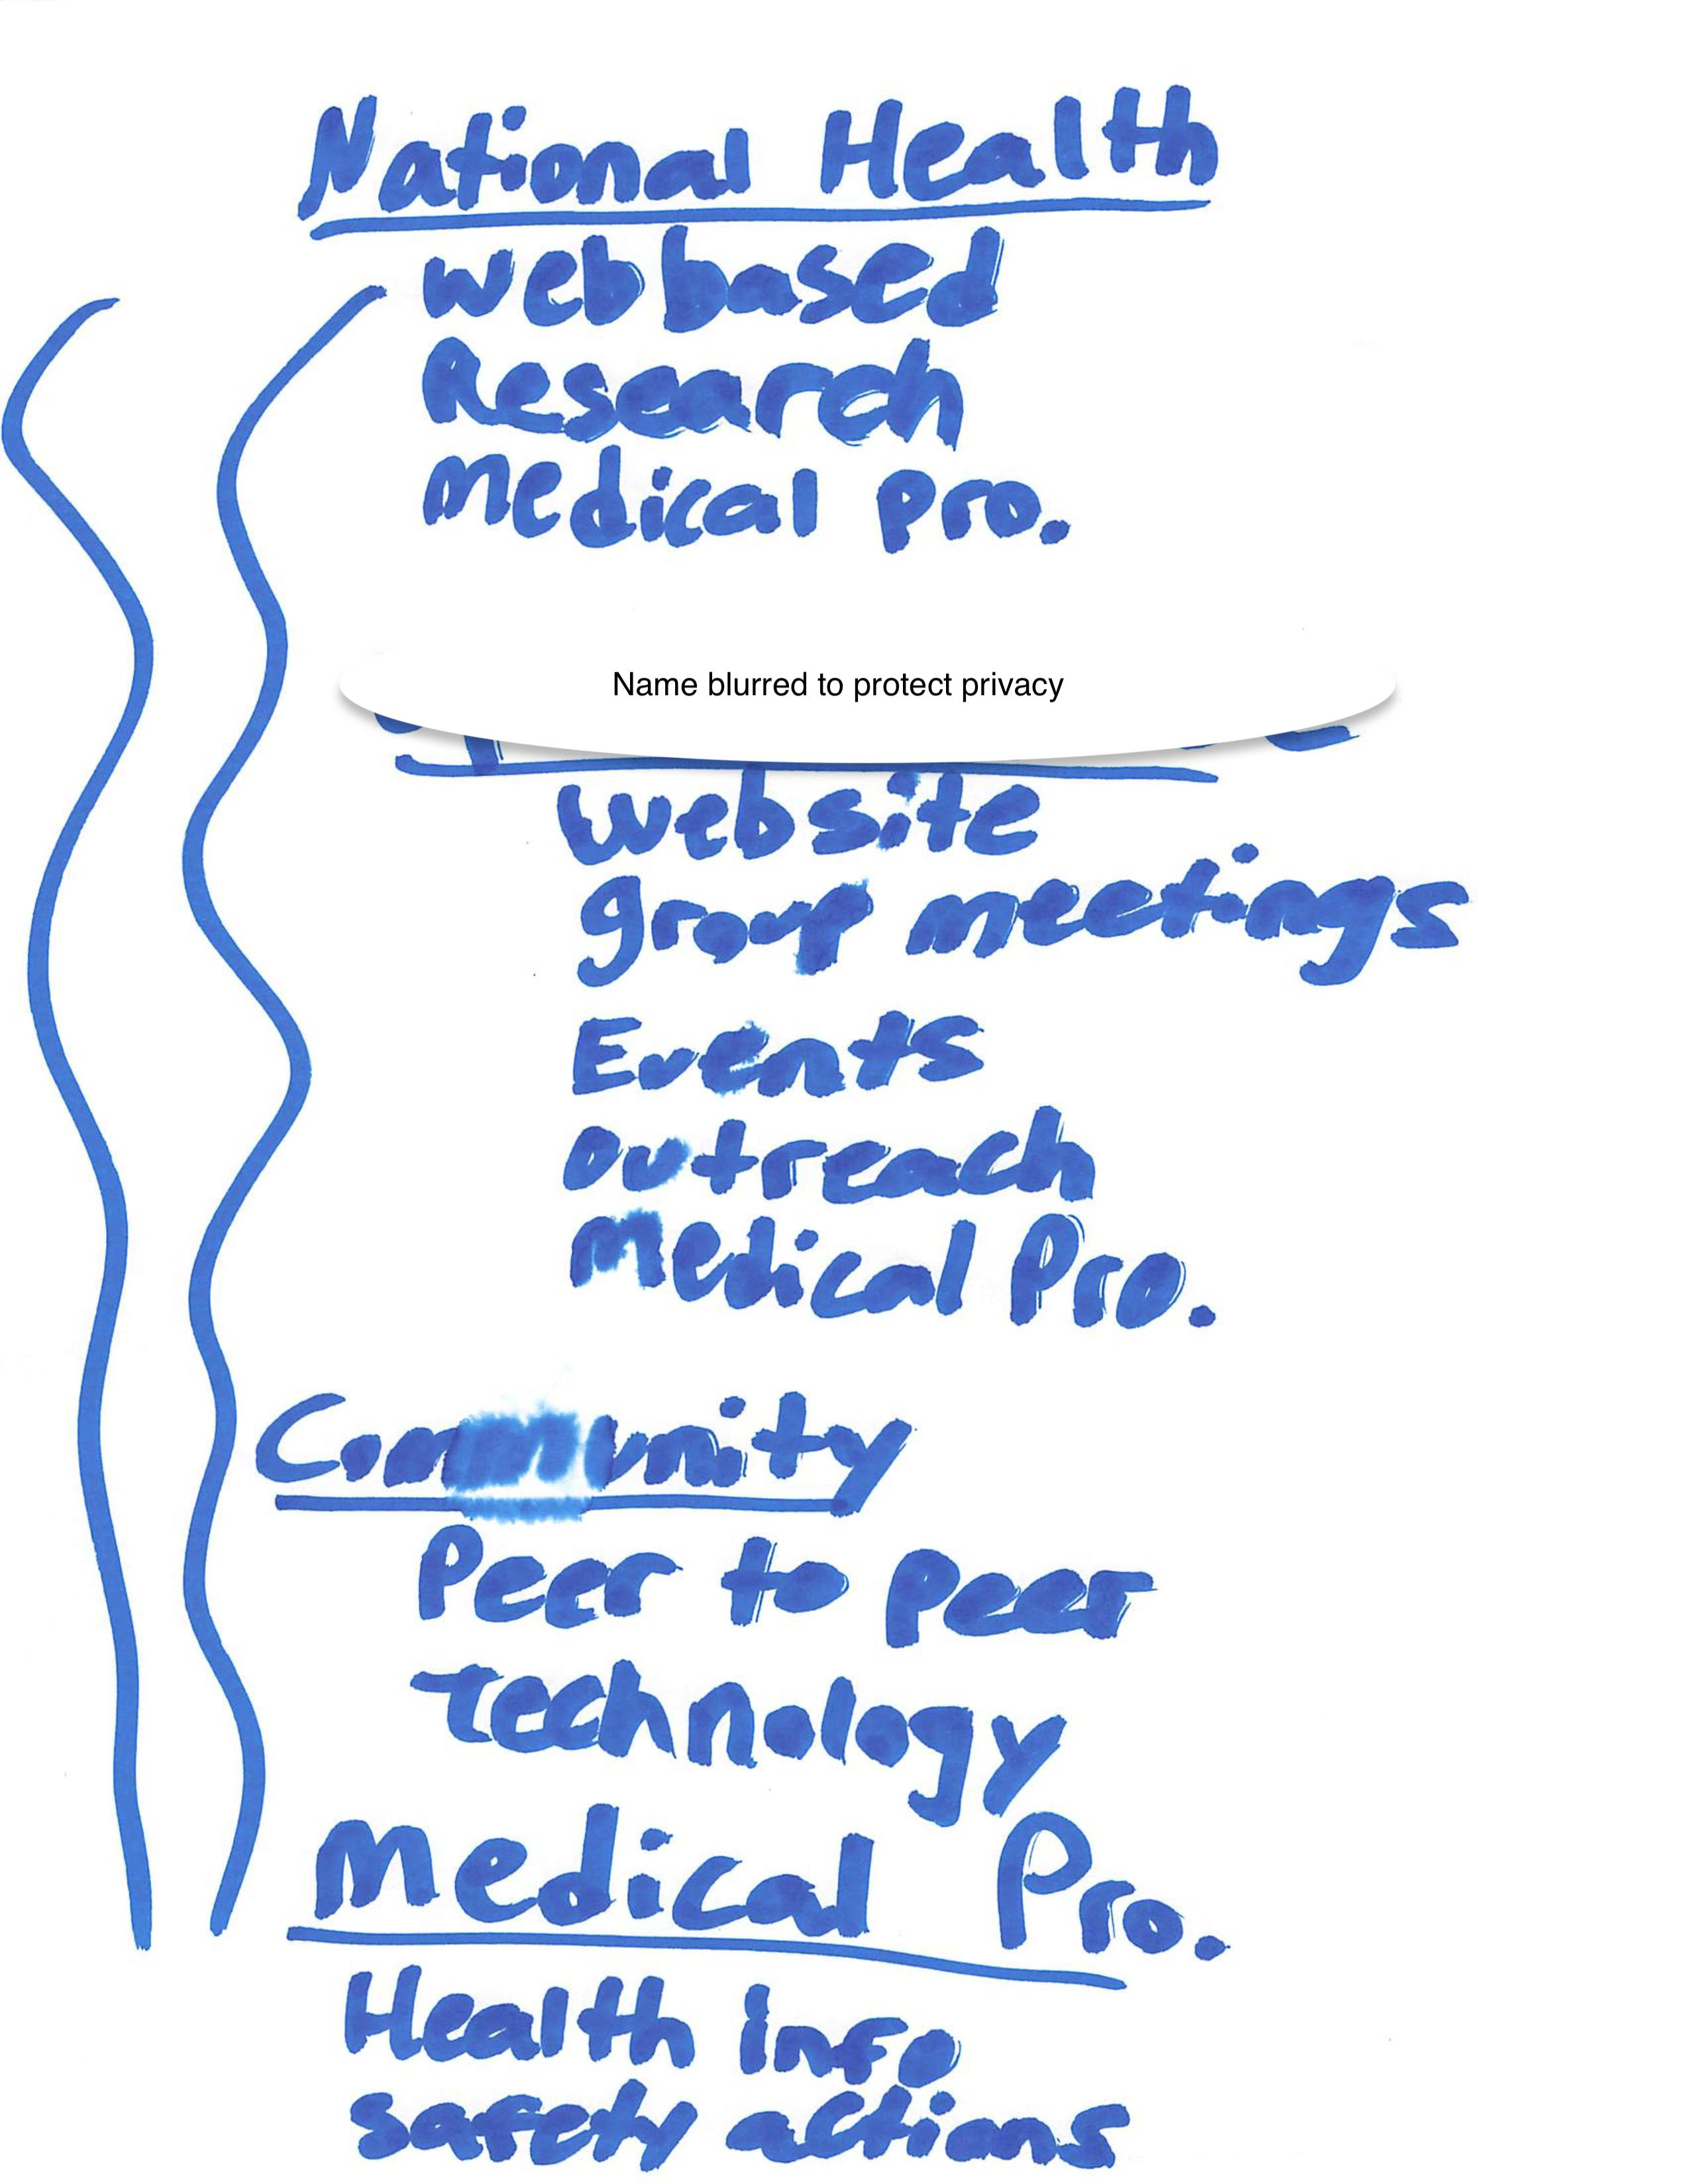 National Health
webbased
Research
Medical pro.
Name blurred to protect privacy
website
group meetings
Events
outreach
Medical Pro.
Community
Peer to peer
Technology
Medical Pro.
Health info
safety actions